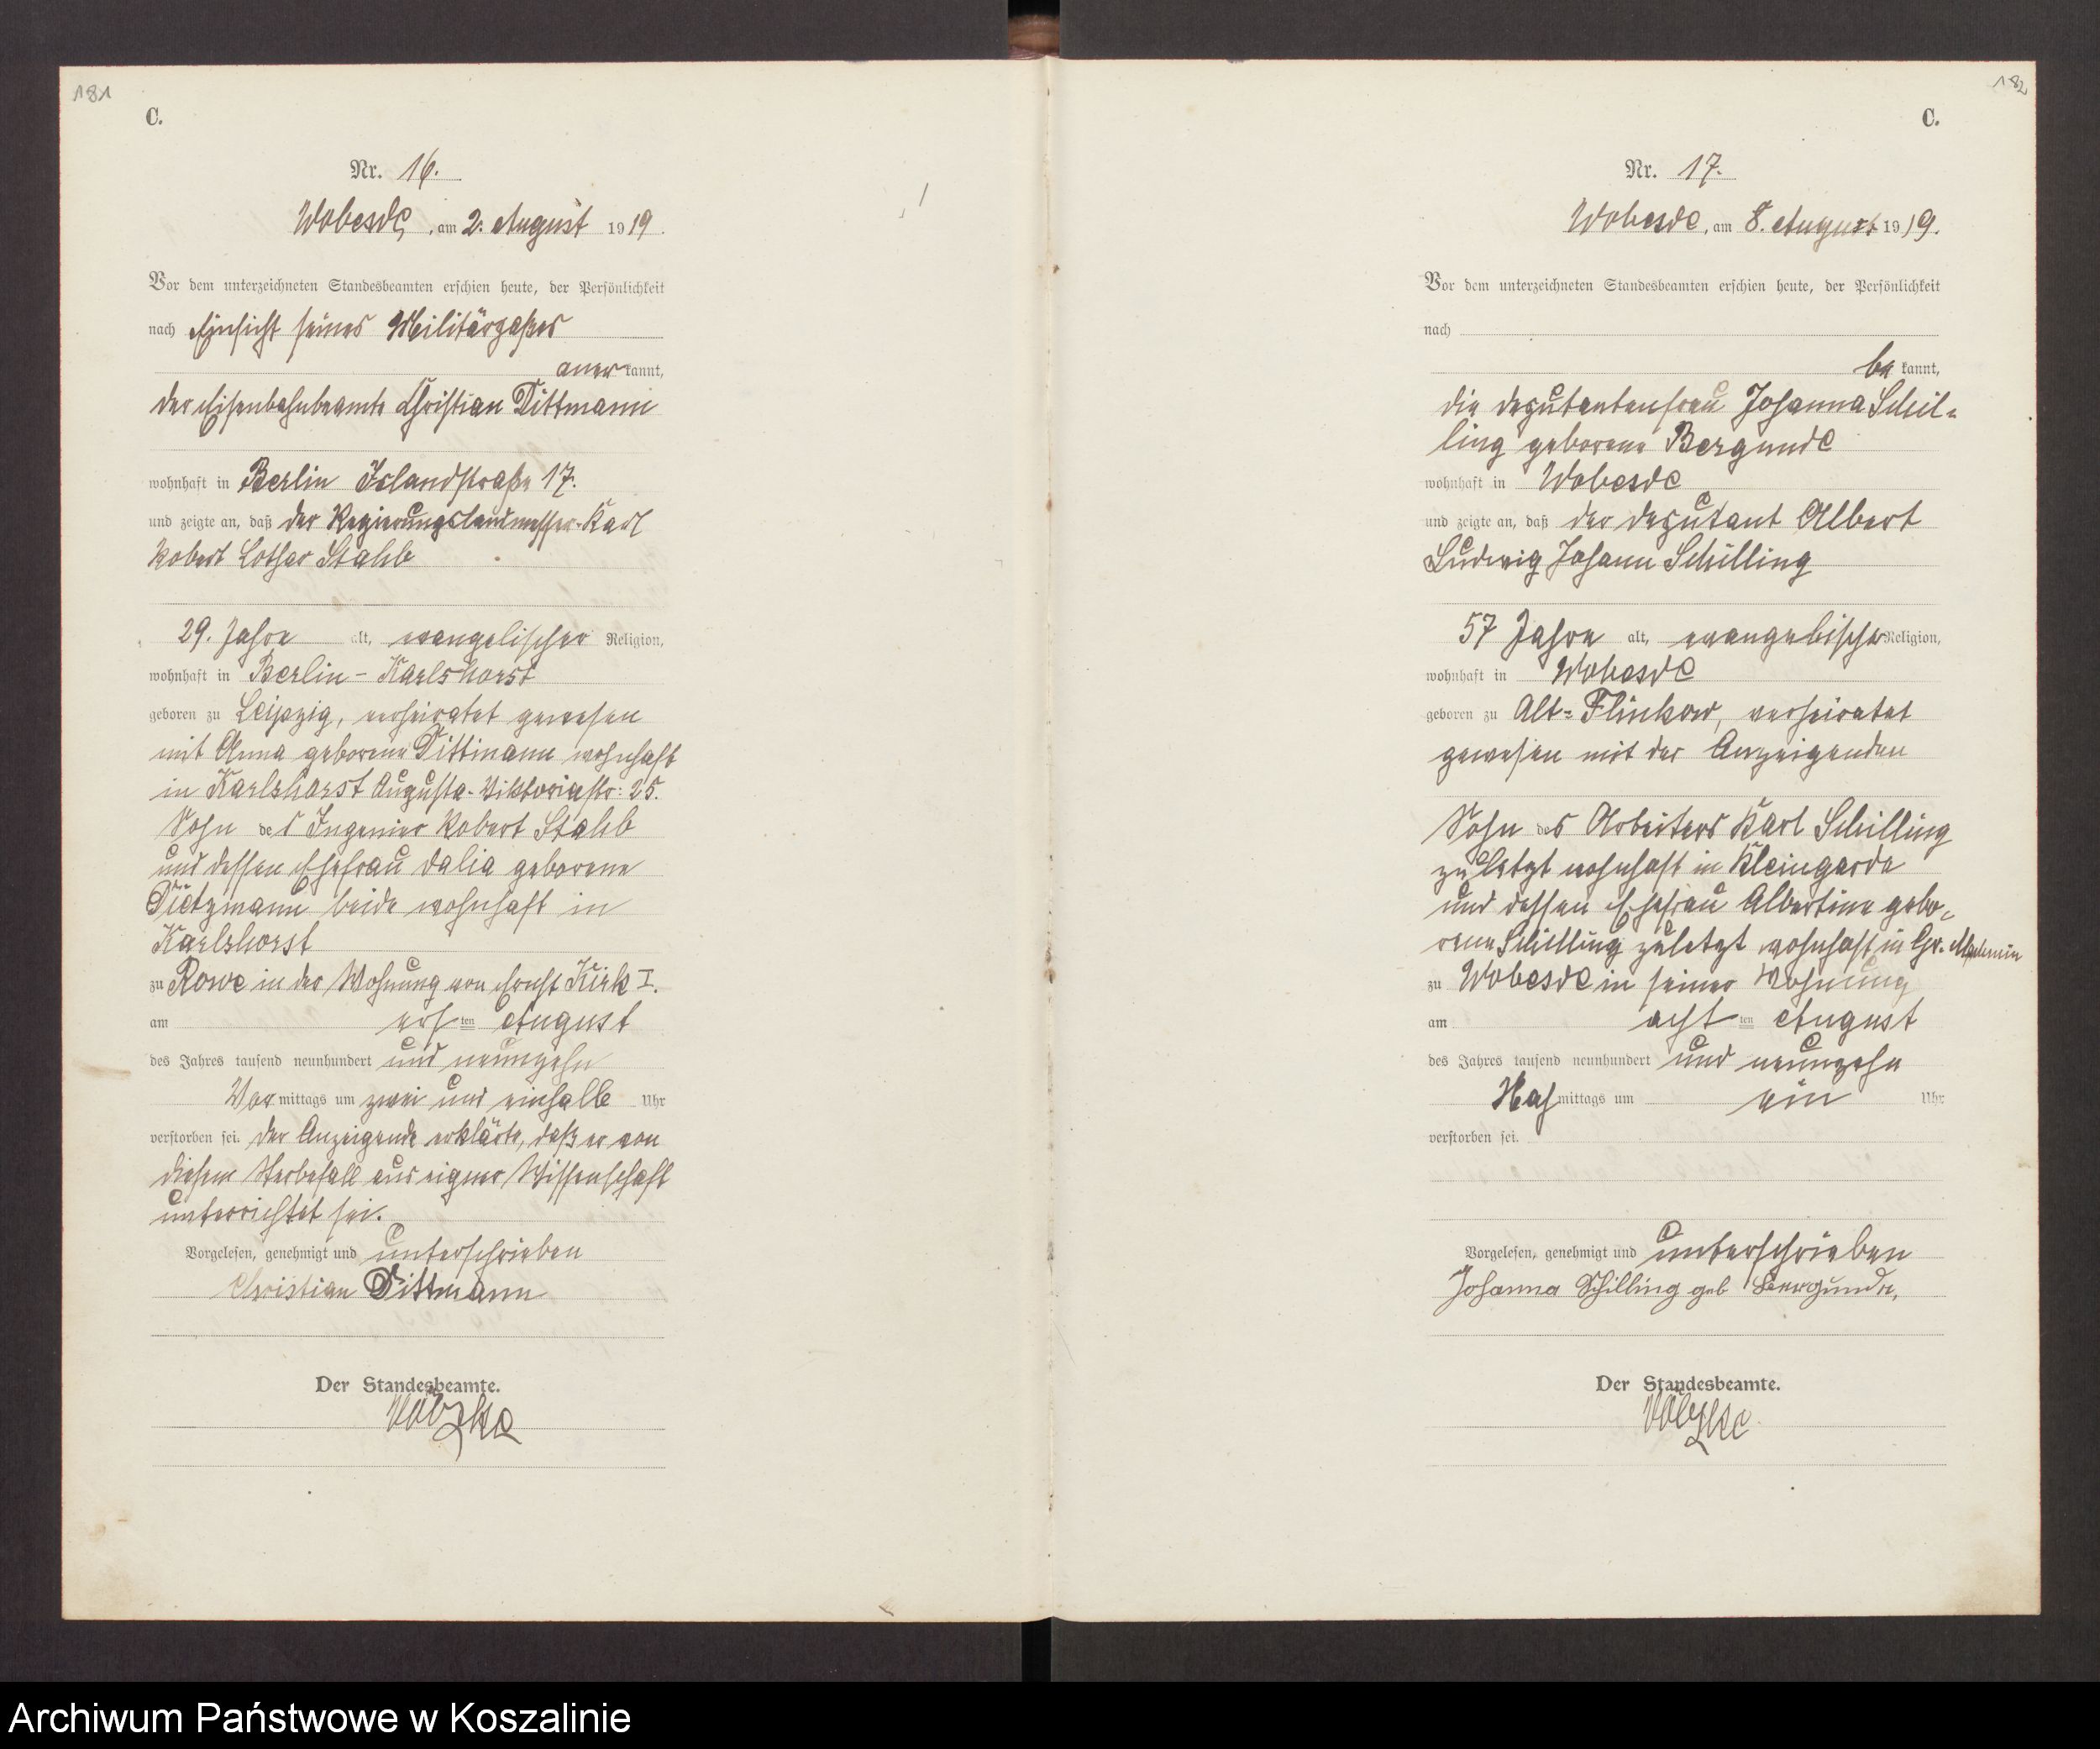 181
C.
Nr. 16.
Wobesde, am 2. August 1919.
Vor dem unterzeichneten Standesbeamten erschien heute, der Persönlichkeit
nach Einsicht seines Militärpaßes
anerkannt,
der Eisenbahnbeamte Christian Dittmann
wohnhaft in Berlin Islandstraße 17.
und zeigte an, daß der Regierungslandmesser Karl
Robert Lothar Stahb
29. Jahre alt, evangelischer Religion,
wohnhaft in Berlin - Karlshorst
geboren zu Leipzig, verheiratet gewesen
mit Anna geborene Dittmann wohnhaft
in Karlshorst Augusta-Viktoriastr: 25.
Sohn des Ingenier Robert Stahb
und dessen Ehefrau Dalia geborene
Tietzmann beide wohnhaft in
Karlshorst
zu Rowe in der Wohnung von Ernst Kirk I.
am ersten August
des Jahres tausend neunhundert und neunzehn
Vormittags um zwei und einhalb Uhr
verstorben sei. Der Anzeigende erklärte, daß er von
diesem Sterbefall aus eigner Wissenschaft
unterrichtet sei.
Vorgelesen, genehmigt und unterschrieben
Christian Dittmann
Der Standesbeamte.
182
C.
Nr. 17.
Wobesde, am 8. August 1919.
Vor dem unterzeichneten Standesbeamten erschien heute, der Persönlichkeit
nach
bekannt,
die Deputantenfrau Johanna Schil-
ling geborene Bergunde
wohnhaft in Wobesde
und zeigte an, daß der Deputant Albert
Ludwig Johann Schilling
57 Jahre alt, evangelischer Religion,
wohnhaft in Wobesde
geboren zu Alt-Flinkow, verheiratet
gewesen mit der Anzeigenden
Sohn des Arbeiters Karl Schilling
zuletzt wohnhaft in Kleingarde
und dessen Ehefrau Albertine gebo-
rene Schilling zuletzt wohnhaft in Gr.
zu Wobesde in seiner Wohnung
am achten August
des Jahres tausend neunhundert und neunzehn
Nachmittags um ein Uhr
verstorben sei.
Vorgelesen, genehmigt und unterschrieben
Johanna Schilling geb
Der Standesbeamte.
Archiwum Państwowe w Koszalinie